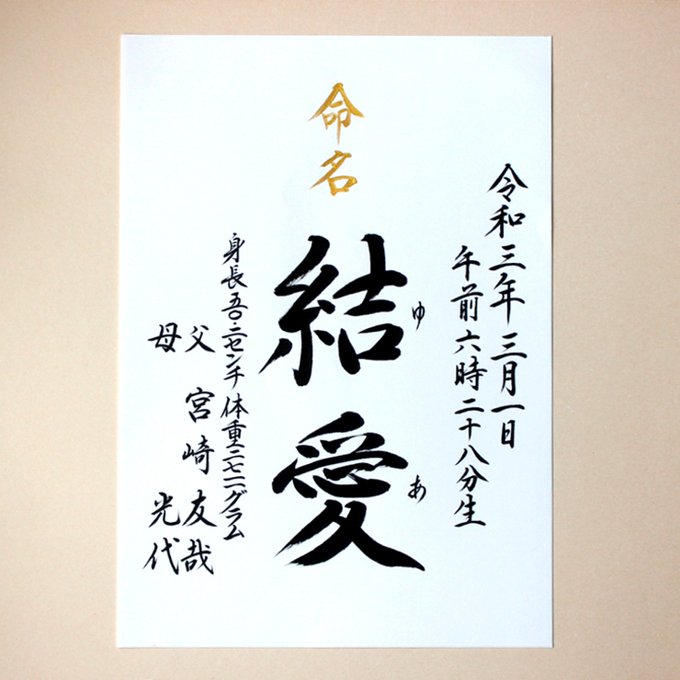 令和三年 三月一日
午前六時二十八分生
命名
結愛
ゆ あ
身長五〇.二センチ 体重二七二一グラム
父 宮崎 友哉
母 光代